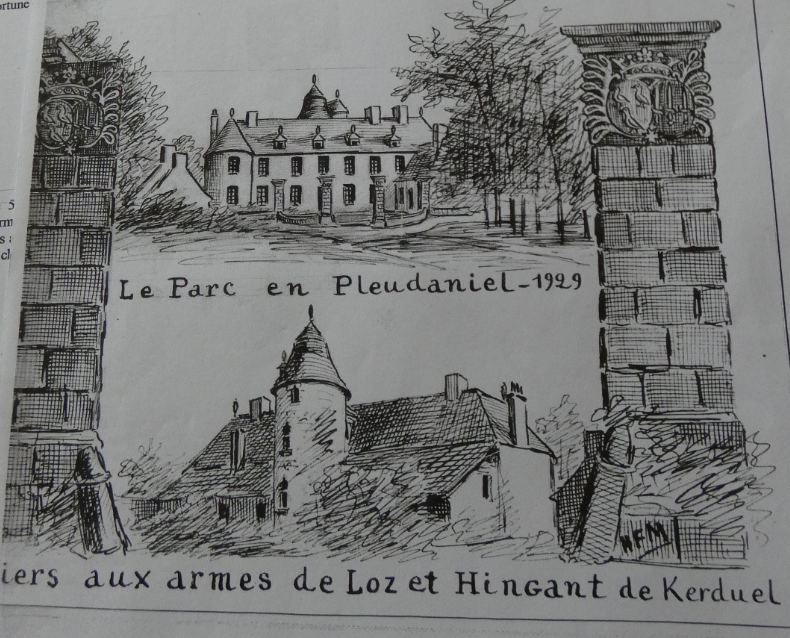 ortune
5
Le Parc en Pleudaniel-1929
HFM
iers aux armes de Loz et Hingant de Kerduel